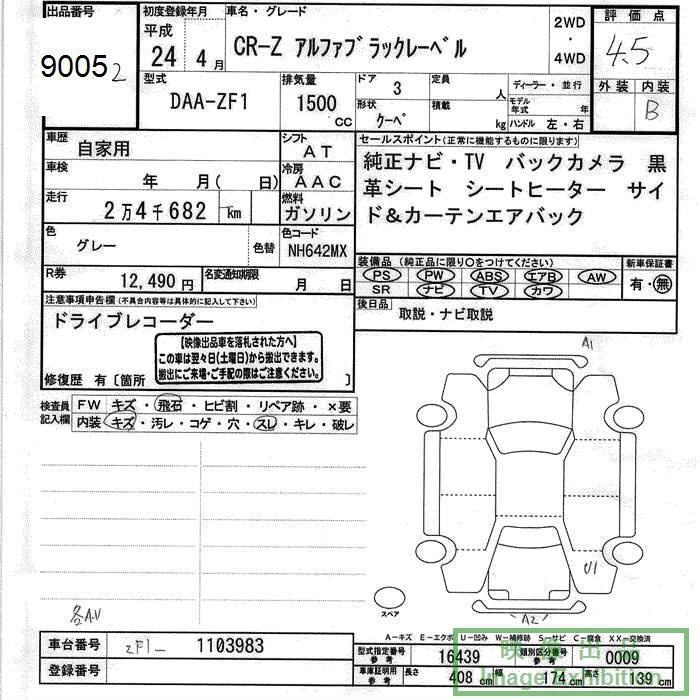 出品番号
90052
初度登録年月
平成
24年 4月
車名・グレード
CR-Z アルファブラックレーベル
2WD
・
4WD
評価点
4.5
外装 内装
B
型式
DAA-ZF1
排気量
1500
CC
ドア
3
定員
人
形状
クーペ
積載
kg
ディーラー・並行
モデル年式 年
ハンドル 左・右
車歴
自家用
シフト
AT
車検
年 月( 日)
冷房
AAC
走行
2万4千682 km
燃料
ガソリン
色
グレー
色替
色コード
NH642MX
R券
12,490円
名変通知期限
月 日
セールスポイント(正常に機能するものに限ります)
純正ナビ・TV バックカメラ 黒
革シート シートヒーター サイ
ド&カーテンエアバック
装備品(純正品に限り○をつけてください)
PS PW ABS エアB AW
SR ナビ TV カワ
新車保証書
有・無
後日品
取説・ナビ取説
注意事項申告欄(不具合内容等は具体的に記入して下さい)
ドライブレコーダー
【映像出品車を落札された方へ】
この車は翌々日(土曜日)から搬出できます。
搬出にご来場・ご手配の際はご注意ください。
修復歴 有〔箇所 〕
検査員
記入欄
FW キズ・飛石・ヒビ割・リペア跡・×要
内装 キズ・汚レ・コゲ・穴・スレ・キレ・破レ
A1
U1
A2
スペア
各A.U
A-キズ E-エクボ U-凹み W-補修跡 S-サビ C-腐食 XX-交換済
車台番号
ZF1- 1103983
登録番号
型式指定番号
参考
16439
類別区分番号
参考
0009
車庫証明用
参考
長さ 408 cm 幅 174 cm 高さ 139 cm
映像出品
Image Exhibition